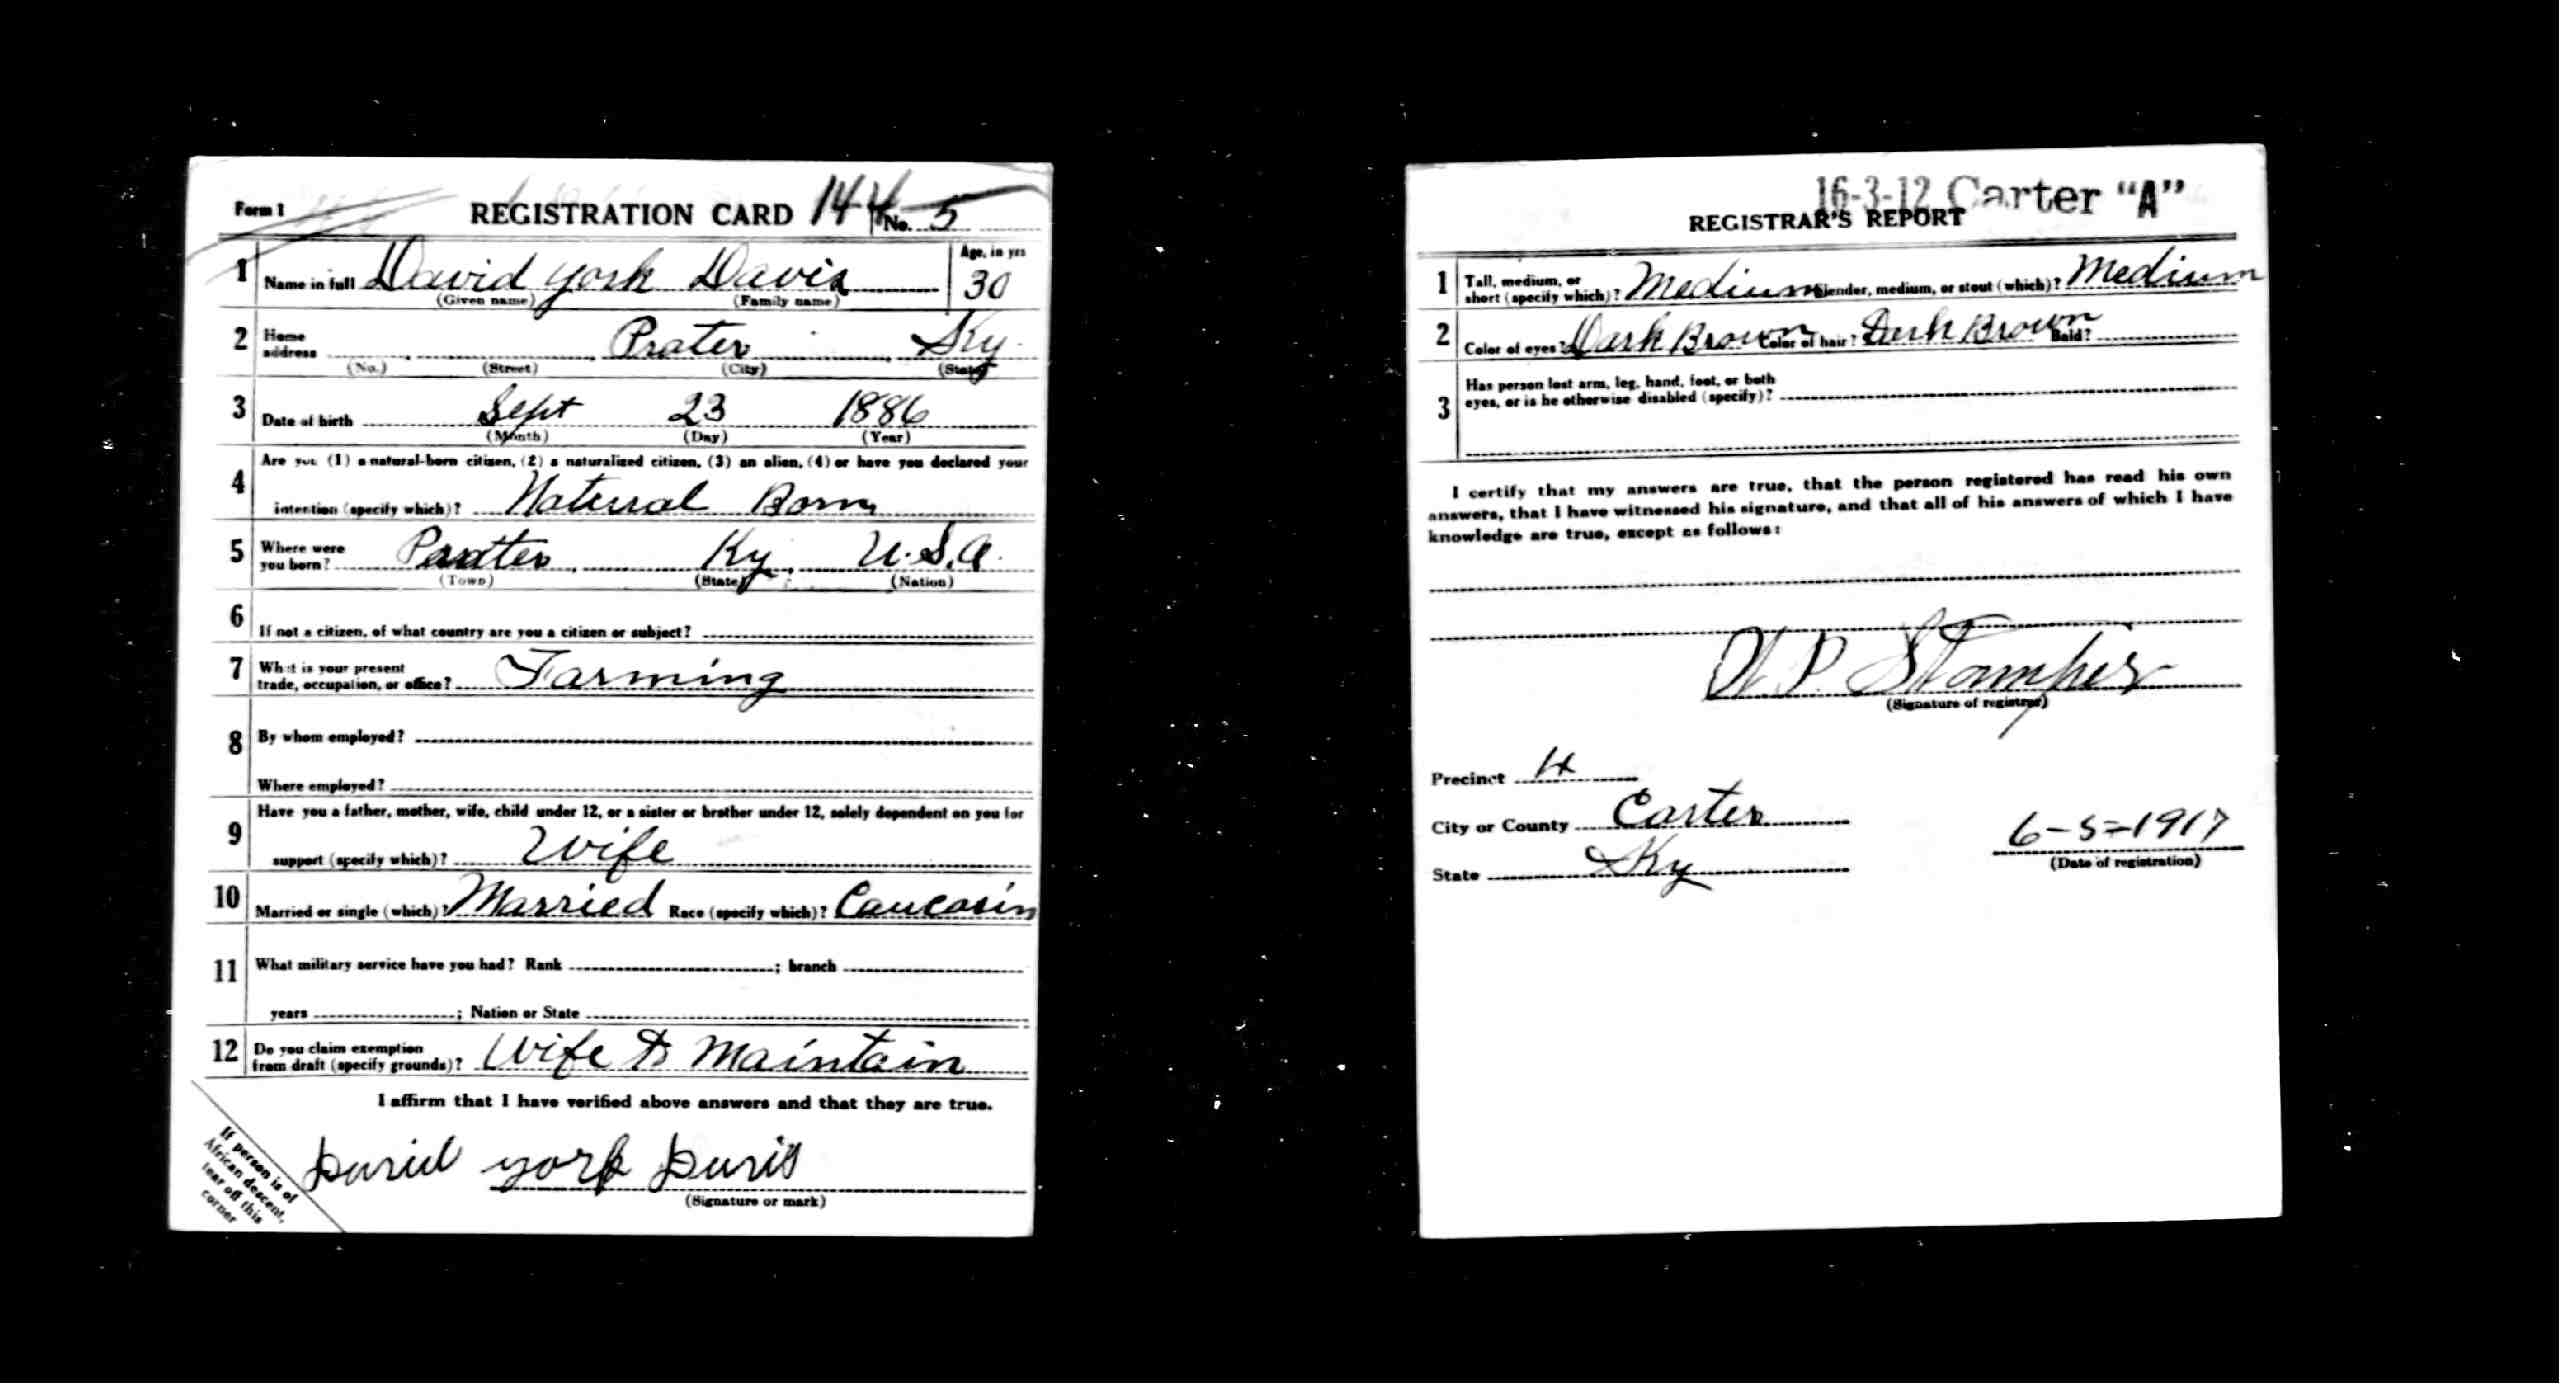 Form 1
REGISTRATION CARD 144 No. 5
1 Name in full David york Davis Age, in yrs 30
(Given name) (Family name)
2 Home address Prater Ky
(No.) (Street) (City) (State)
3 Date of birth Sept 23 1886
(Month) (Day) (Year)
Are you (1) a natural-born citizen, (2) a naturalized citizen, (3) an alien, (4) or have you declared your
4 intention (specify which)? Naturral Born
5 Where were you born? Prater Ky U.S.a.
(Town) (State) (Nation)
6 If not a citizen, of what country are you a citizen or subject?
7 What is your present trade, occupation, or office? Farming
8 By whom employed?
Where employed?
Have you a father, mother, wife, child under 12, or a sister or brother under 12, solely dependent on you for
9 support (specify which)? Wife
10 Married or single (which)? Married Race (specify which)? Caucasin
11 What military service have you had? Rank ; branch
years ; Nation or State
12 Do you claim exemption from draft (specify grounds)? Wife to Maintain
I affirm that I have verified above answers and that they are true.
If person is of
African descent,
tear off this
corner
David york Davis
(Signature or mark)
16-3-12 Carter "A"
REGISTRAR'S REPORT
1 Tall, medium, or short (specify which)? Medium Slender, medium, or stout (which)? Medium
2 Color of eyes? Dark Brown Color of hair? Dark Brown Bald?
Has person lost arm, leg, hand, foot, or both
3 eyes, or is he otherwise disabled (specify)?
I certify that my answers are true, that the person registered has read his own
answers, that I have witnessed his signature, and that all of his answers of which I have
knowledge are true, except as follows:
P. Stamper
(Signature of registrar)
Precinct 4
City or County Carter
State Ky
6-5-1917
(Date of registration)